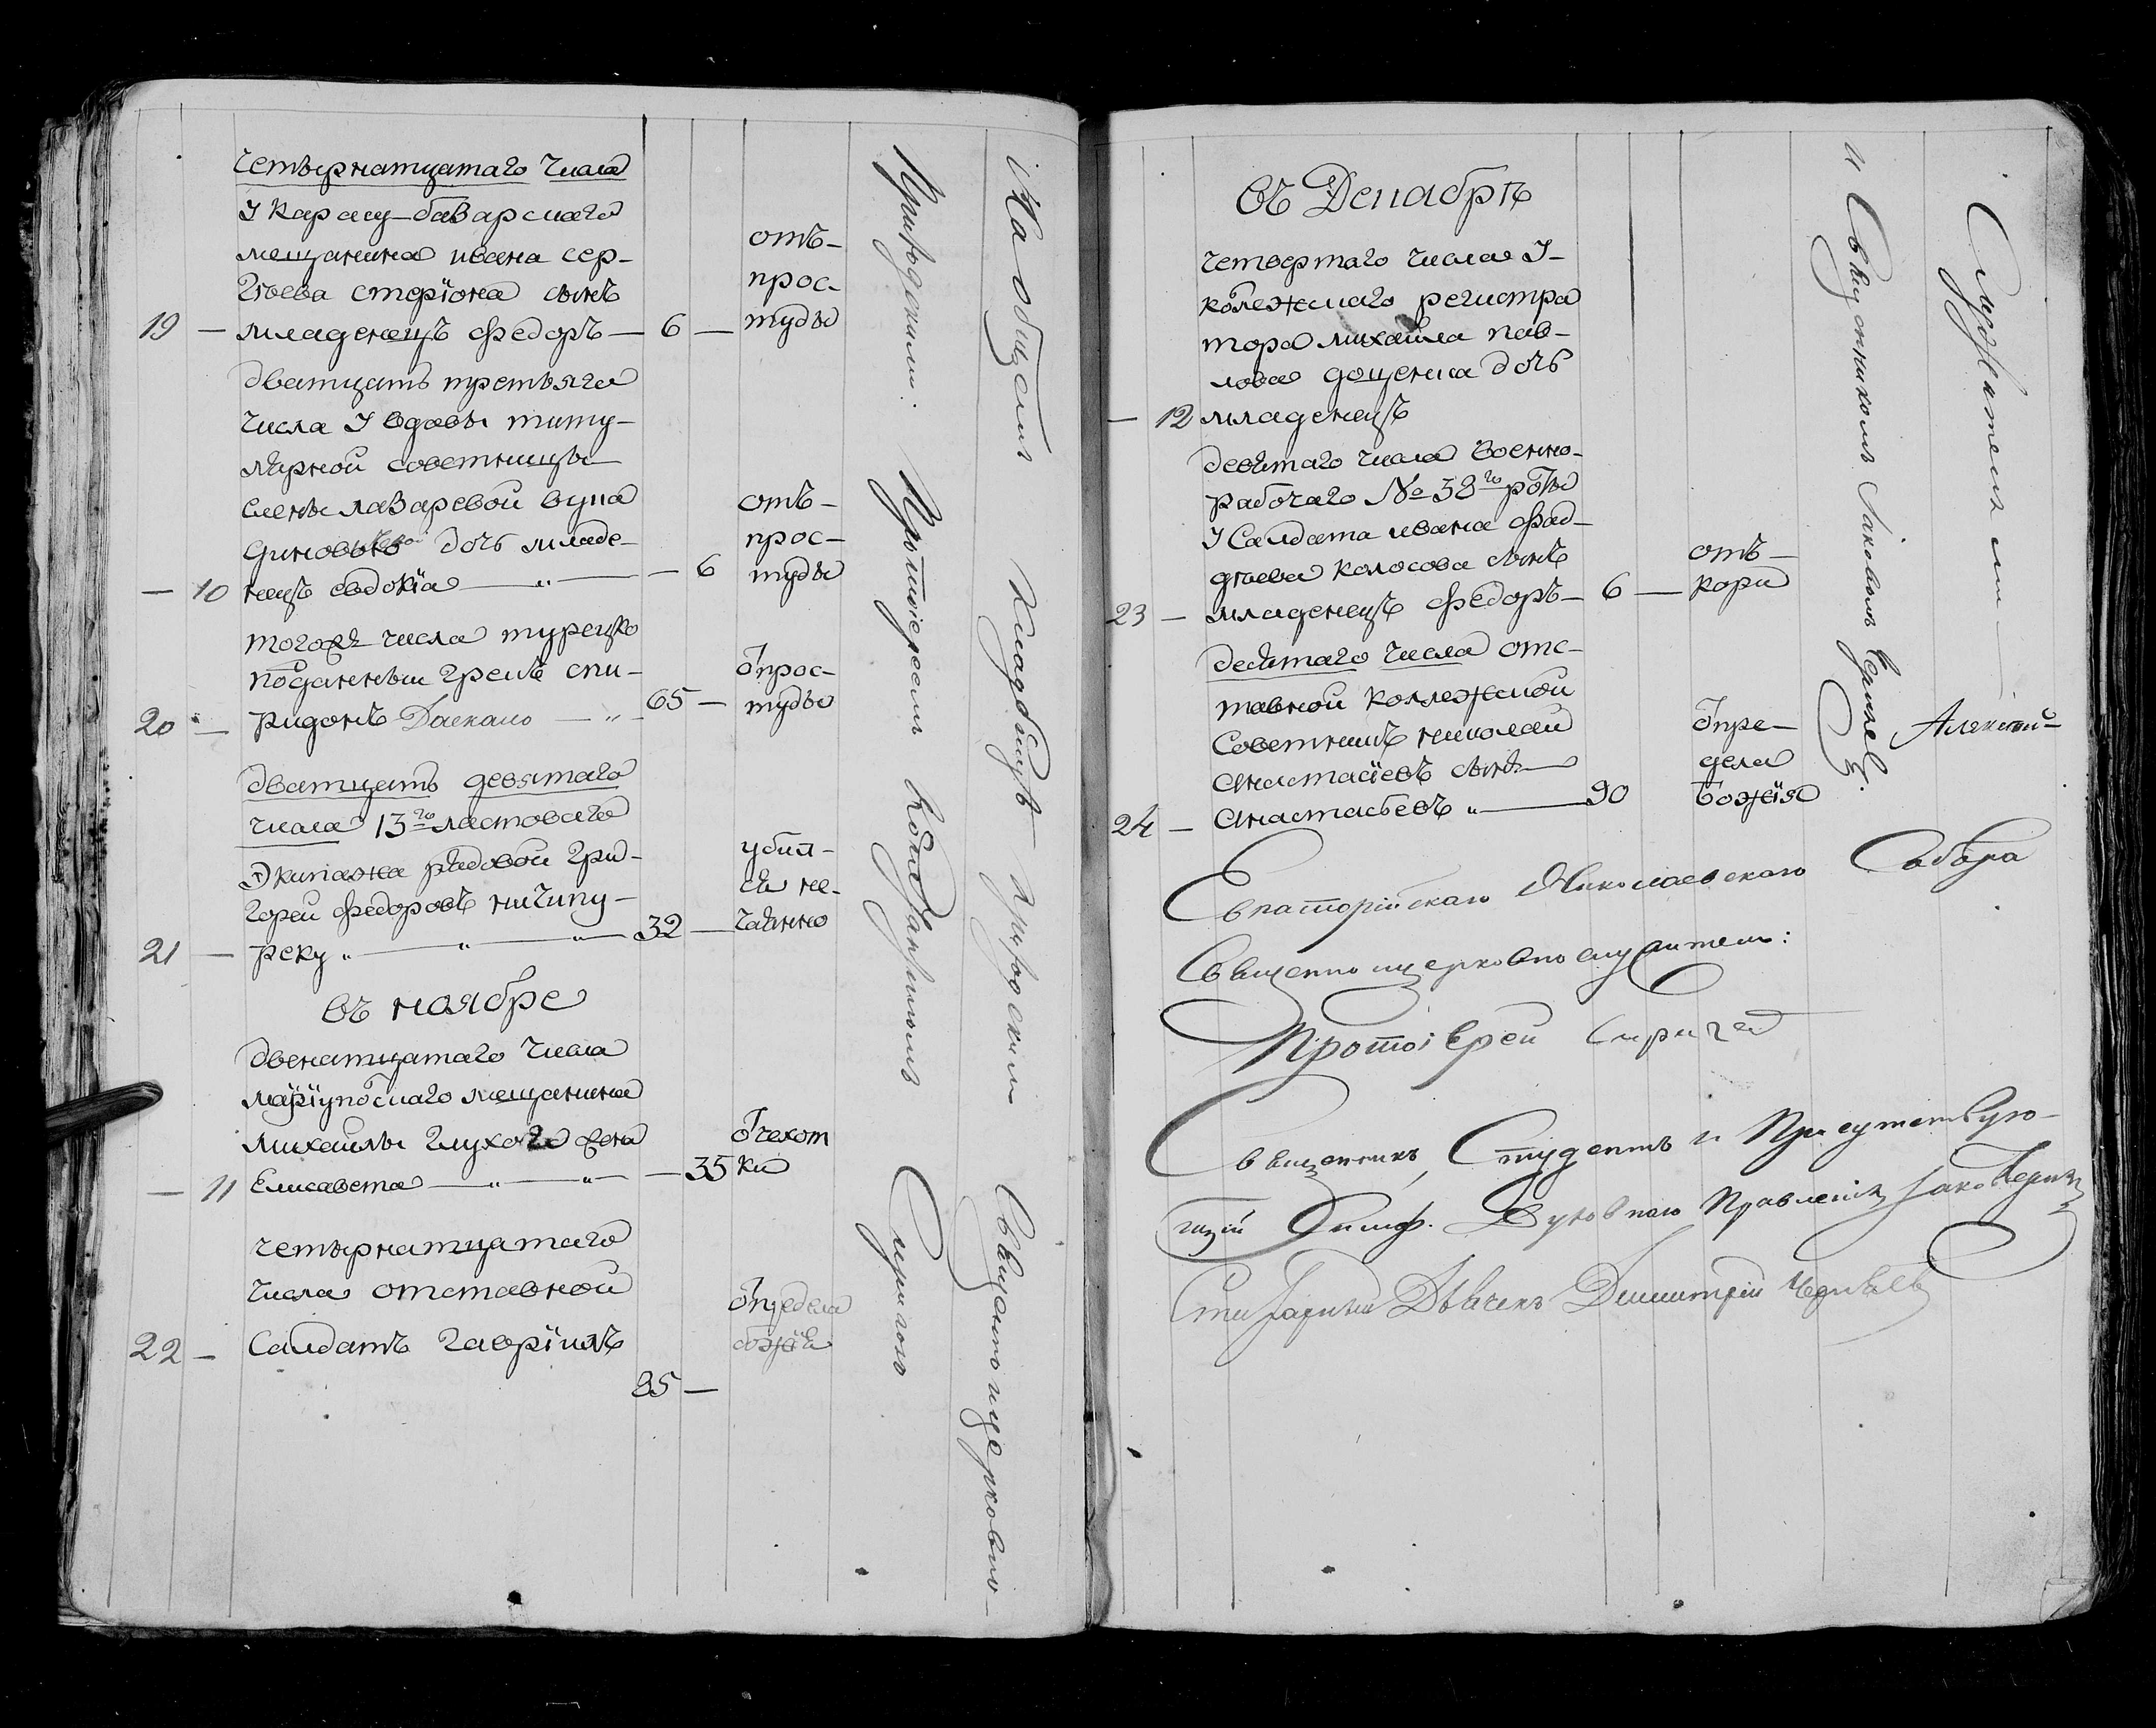 четырнатцатаго числа
У Карасу-баварскаго
мещанина ивана сер-
гѣева стерїона сынъ
19 — младенецъ Федоръ — 6 —
отъ-
прос-
туды
дватцать третьяго
числа У вдовы титу-
лярной советницы
Елены лазаревой
дочь младе-
— 10 нецъ евдокїа — „ — — 6
отъ-
прос-
туды
тогоже числа турецко
подданный грекъ спи-
20 — ридонъ — „ — 65 —
отпрос-
туды
дватцать девятаго
числа 13го ластоваго
Экипажа рядовой Гри-
горей Федоровъ ничипу-
21 — реку „ — „ — „ — 32 —
убил-
ся не-
чаянно
въ ноябре
двенатцатаго числа
марїупольскаго мещанина
михайлы глухого жена
— 11 Елисавета — „ — „ — — 35
отчехот
ки
четырнатцатаго
числа отставной
22 — Салдатъ гаврїилъ
85 —
отпредела
божїя
Приходскимъ Протоіереемъ
На общемъ Кладбищѣ — приходскими Священно и церковно-
въ Декабрѣ
четвертаго числа У-
колежскаго регистра
тора михайла пав-
лова доценка дочь
— 12 младенецъ
девятаго числа военно-
рабочаго № 38го роты
У Салдата ивана фад-
дѣева колосова сынъ
23 — младенецъ Федоръ — 6 —
отъ-
кори
десятаго числа отс-
тавной коллежской
Советникъ николай
Анастасїевъ сынъ
24 — Анастасьевъ „ — 90
отпре-
дела
божїя
и Священникомъ Иаковомъ
Служителями —
Алексѣй
Евпаторійскаго Николаевскаго Собора
Священно и церковно служители:
Протоіерей
Священникъ, Студентъ и Присутствую-
щій Симф. Духовнаго Правленія
Стихарный Дьячекъ Димитрій